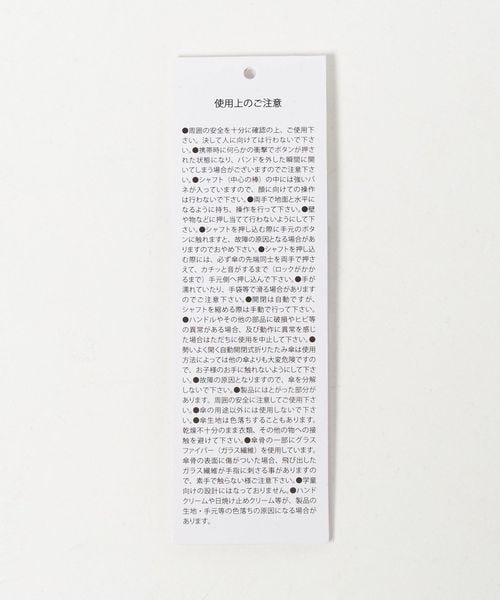 使用上のご注意
●周囲の安全を十分に確認の上、ご使用下
さい。決して人に向けては行わないで下さ
い。●携帯時に何らかの衝撃でボタンが押さ
れた状態になり、バンドを外した瞬間に開
いてしまう場合がございますのでご注意下さ
い。●シャフト（中心の棒）の中には強いバ
ネが入っていますので、顔に向けての操作
は行わないで下さい。●両手で地面と水平に
なるように持ち、操作を行って下さい。●壁
や物などに押し当てて行わないようにして下
さい。●シャフトを押し込む際に手元のボタ
ンに触れますと、故障の原因となる場合があ
りますのでおやめ下さい。●シャフトを押し
込む際には、必ず傘の先端同士を両手で押さ
えて、カチッと音がするまで（ロックがかか
るまで）手元側へ押し込んで下さい。●手が
濡れていたり、手袋等で滑る場合があります
のでご注意下さい。●開閉は自動ですが、
シャフトを縮める際は手動で行って下さい。
●ハンドルやその他の部品に破損やヒビ等
の異常がある場合、及び動作に異常を感じ
た場合はただちに使用を中止して下さい。●
勢いよく開く自動開閉式折りたたみ傘は使用
方法によっては他の傘よりも大変危険ですの
で、お子様のお手に触れないようにして下さ
い。●故障の原因となりますので、傘を分解
しないで下さい。●製品にはとがった部分が
あります。周囲の安全に注意してご使用下さ
い。●傘の用途以外には使用しないで下さ
い。●傘生地は色落ちすることもあります。
乾燥不十分のまま衣類、その他の物への接
触を避けて下さい。●傘骨の一部にグラス
ファイバー（ガラス繊維）を使用しています。
傘骨の表面に傷がついた場合、飛び出した
ガラス繊維が手指に刺さる事がありますの
で、素手で触らない様ご注意下さい。●学童
向けの設計にはなっておりません。●ハンド
クリームや日焼け止めクリーム等が、製品の
生地・手元等の色落ちの原因になる場合が
あります。